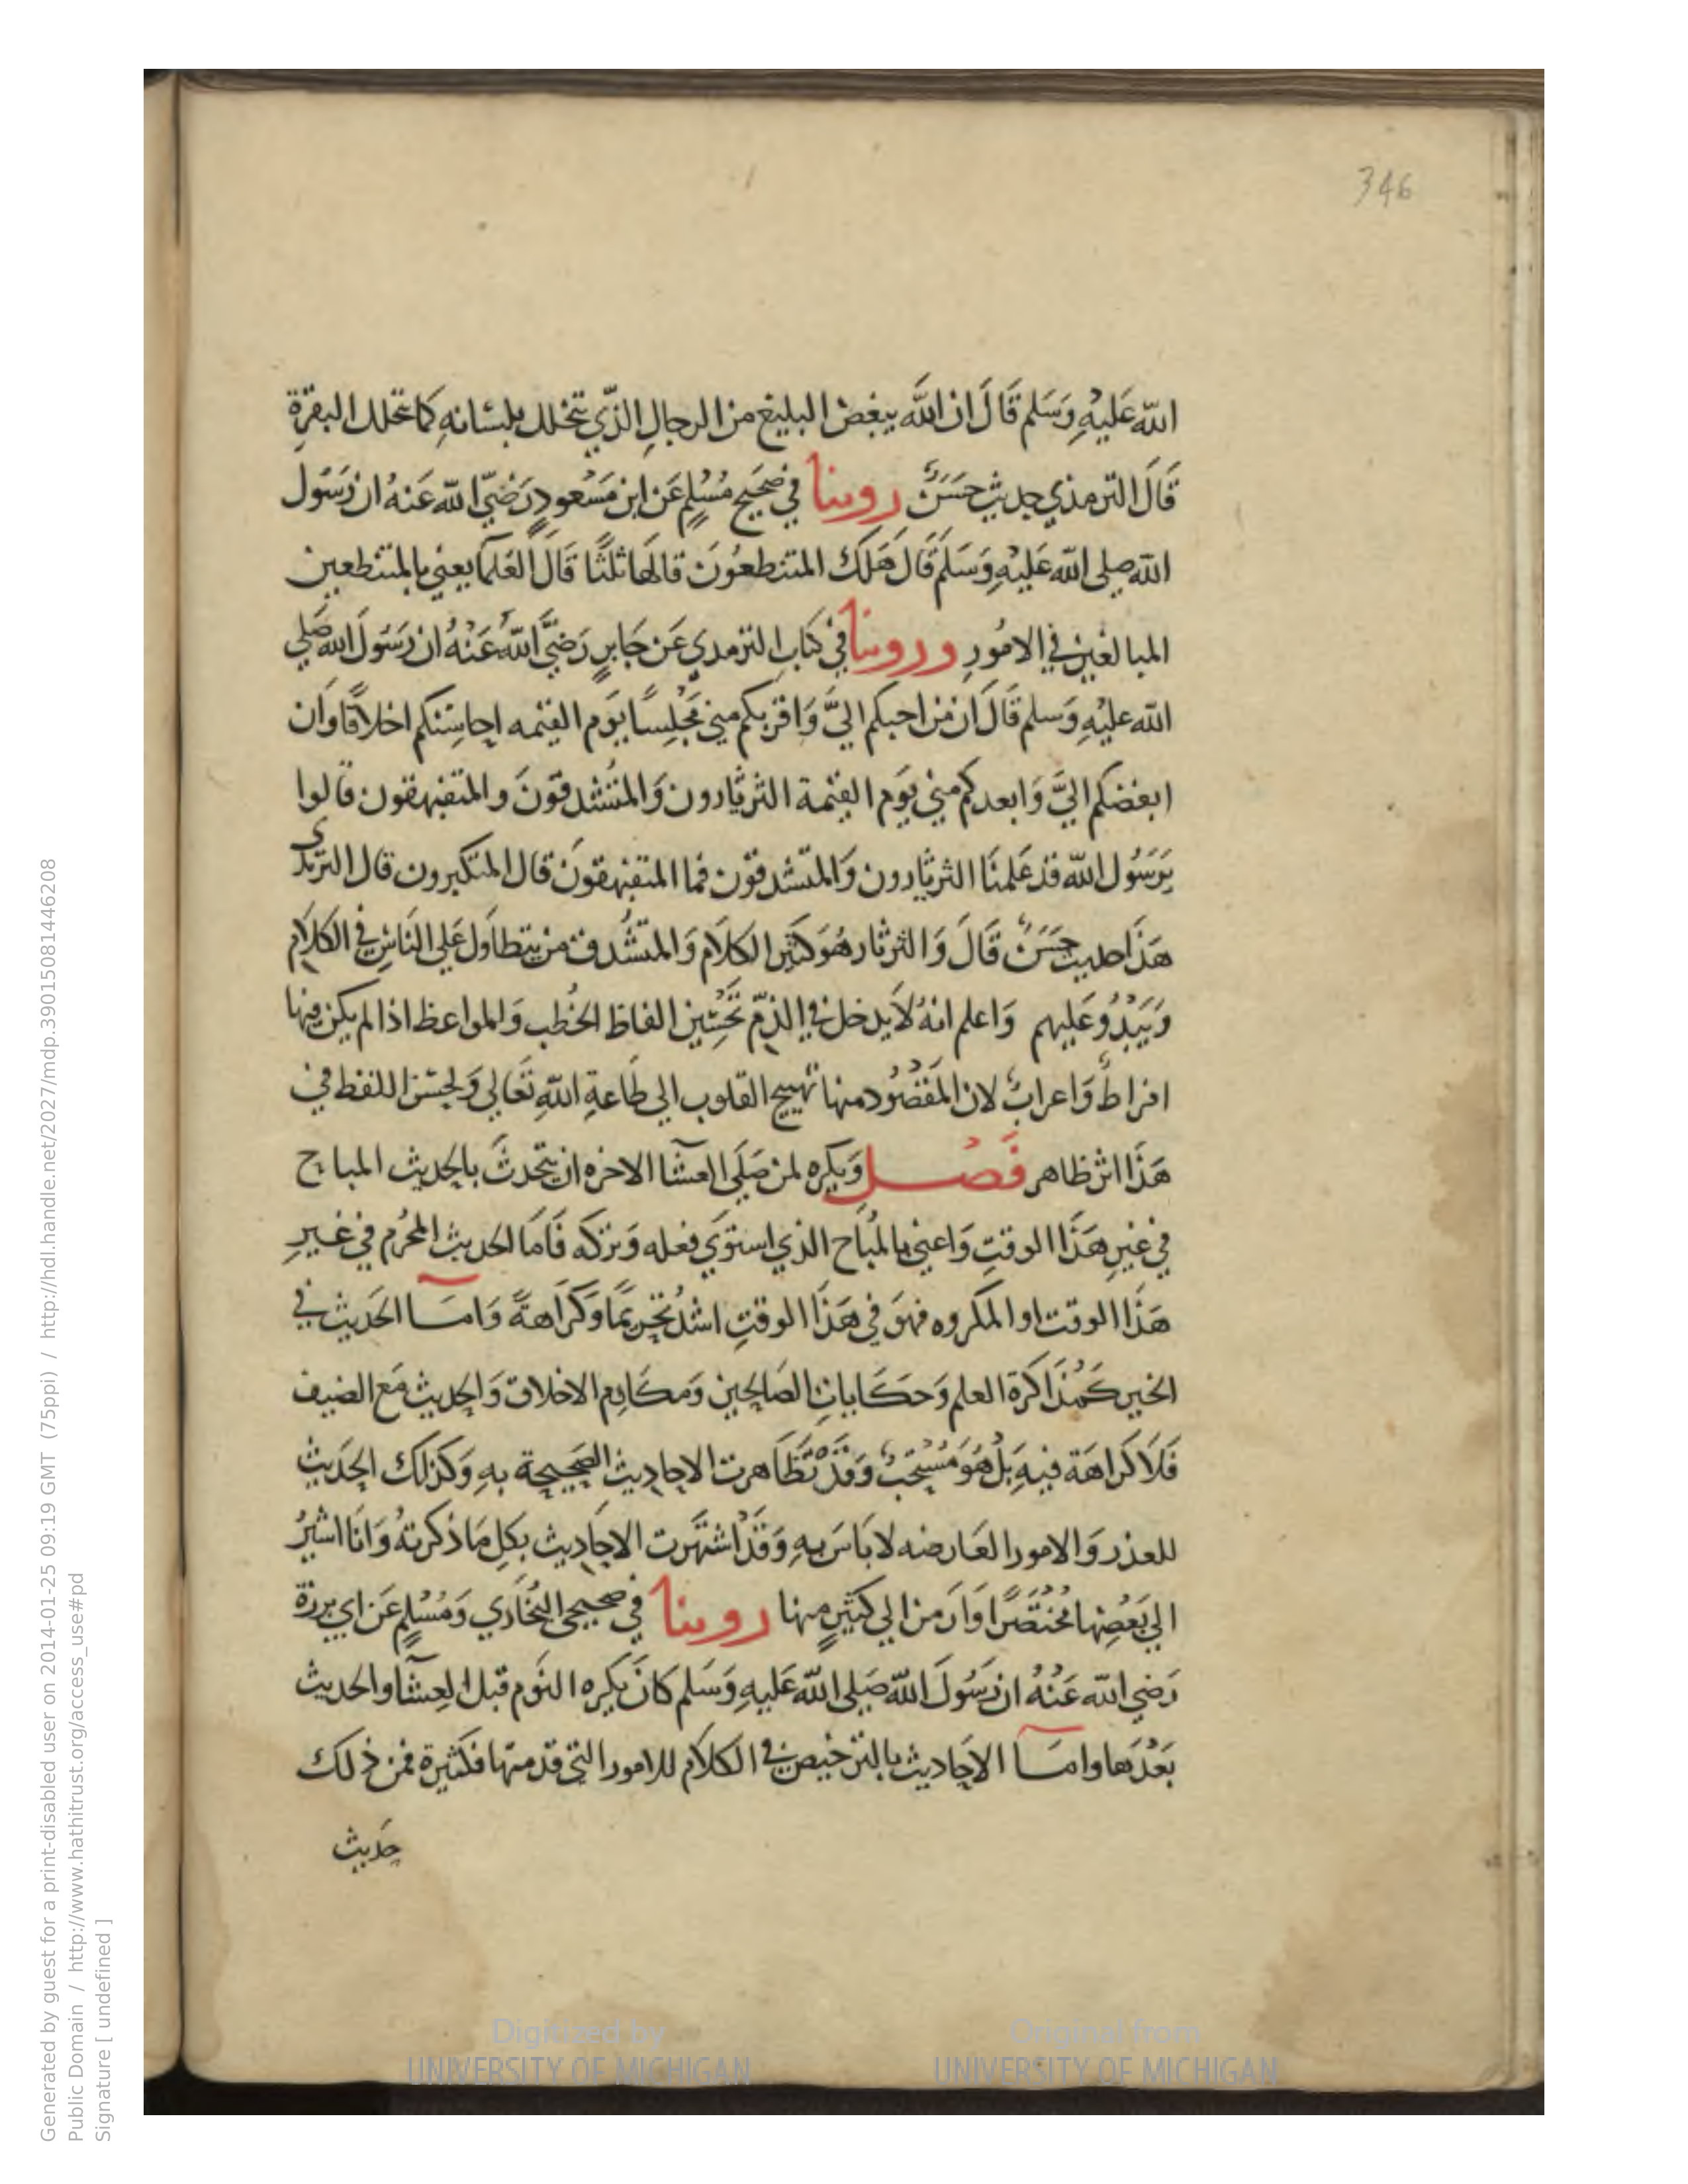 346
الله عَليْهِ وَسَلم قَالَ ان اللَّه يبغض البليغ من الرجالِ الذّي يتخلل بلسَانهِ كما تتخلل البقرةِ
قَالَ الترمذي حديث حَسَنٌ روينا في صَحيح مُسْلِمٍ عَن ابن مَسْعودٍ رَضيَّ الله عَنهُ ان رَسَول
الله صلى الله عَليْهِ وَسَلمَ قَالَ هَلكَ المتنطعُونَ قالهَا ثلثًا قَالَ العَلمآ يعني بالمتنطعين
المبالغين في الامُورِ وروينا في كتابِ الترمدي عَن جَابرٍ رَضيَّ اللَّهُ عَنْهُ ان رَسَولَ الله صَلى
الله عليْهِ وَسلم قَالَ ان من احبكم اليَّ وَاقربكم مني مَجْلِسًا يَوم القيمه احاسِنكم اخلاقًا وَان
ابغضكم اليَّ وَابعدكم مني يَوم القيمة الثرثارون وَالمتُشدقون وَالمتفيهقون قالوا
يَرَسُول الله قد عَلمنَا الثرثارون وَالمتشدقون فما المتفيهقونَ قال المتكبرون قال الترمدى
هَذَا حديث حَسَنٌ قَالَ وَالثرثار هُوَ كثير الكلَام وَالمتشُدق من يتطاوَل عَلى النَاسِ في الكلَام
وَيَبْذُو عَليهم وَاعلم انهُ لَا يدخل في الذمّ تَحْسِين الفاظ الخُطب وَالمواعظ اذا لم يكن فيها
افراطٌ وَاعرابٌ لان المَقْصُود منها تهييج القلوب الى طَاعةِ اللهِ تَعَالى وَلحسْن اللفظ في
هَذَا اثر ظاهر فَصْل وَيكره لمن صَلَى العشَآ الاخره ان يتحدثَ بالحديث المباح
في غيرِ هَذَا الوقتِ وَاعني بالمُبَاح الذي استوَي فعله وَتركه فَامَا الحديث المحُرم في غيرِ
هَذَا الوقت او المكروه فهوَ في هَذَا الوقتِ اشدُ تحريمًا وَكرَاهةً وَامَا الحَديث في
الخير كَمُذَاكرة العلم وَحكَاياتِ الصَالحين وَمكَارم الاخلاق وَالحديث مَع الضيف
فَلَا كَراهَة فيهِ بَلْ هُوَ مُسْتحَبٌ وَقدْ تَظَاهرت الاحاديث الصَحيحة بهِ وَكذلك الحَديث
للعذر وَالامور العَارضه لا بَاسَ بهِ وَقَدْ اشتهَرت الاحَاديث بكلِ مَا ذكرتهُ وَانَا اشيرُ
الي بَعْضِها مُخْتصَرًا وَارَمز الي كثيرٍ مِنها روينا في صحيحى البُخَاري وَمُسْلِمٍ عَن ابي برزة
رَضي الله عَنْهُ ان رَسُولَ الله صَلى الله عَليهِ وَسَلم كانَ يكره النَوم قبل العِشَآ والحديث
بَعْدَهَا وامَا الاحَاديث بالترخيصِ في الكلَام للامور التي قدمتها فكثيرة فمن ذلك
حَديث
Generated by guest for a print-disabled user on 2014-01-25 09:19 GMT (75ppi) / http://hdl.handle.net/2027/mdp.39015081446208
Public Domain / http://www.hathitrust.org/access_use#pd
Signature [ undefined ]
Digitized by
UNIVERSITY OF MICHIGAN
Original from
UNIVERSITY OF MICHIGAN